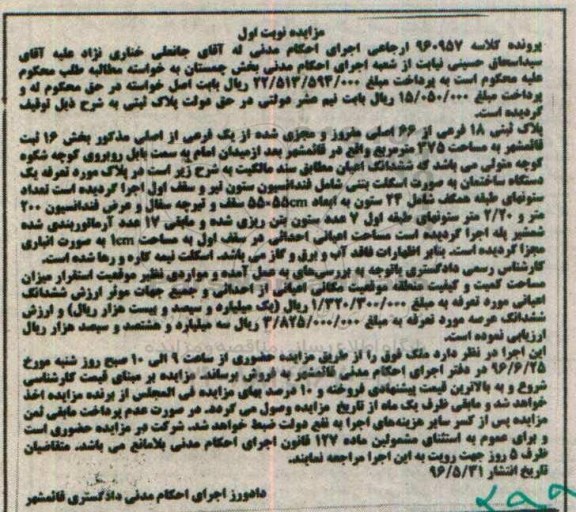 مزایده نوبت اول
پرونده کلاسه ۹۶۰۹۵۷ ارجاعی اجرای احکام مدنی له آقای جانعلی خناری نژاد علیه آقای
سیداسحاق حسینی نیابت از شعبه اجرای احکام مدنی بخش چمستان به خواسته مطالبه طلب محکوم
علیه محکوم است به پرداخت مبلغ ۲۲/۵۱۳/۵۹۳/۰۰۰ ریال بابت اصل خواسته در حق محکوم له و
پرداخت مبلغ ۱۵/۰۵۰/۰۰۰ ریال بابت نیم عشر دولتی در حق دولت پلاک ثبتی به شرح ذیل توقیف
گردیده است.
پلاک ثبتی ۱۸ فرعی از ۶۶ اصلی مفروز و مجزی شده از یک فرعی از اصلی مذکور بخش ۱۶ ثبت
قائمشهر به مساحت ۲۷۵ مترمربع واقع در قائمشهر بعد ازمیدان امام به سمت بابل روبروی کوچه شکوه
کوچه متولی می باشد که ششدانگ اعیان مطابق سند مالکیت به شرح زیر است در پلاک مورد تعرفه یک
دستگاه ساختمان به صورت اسکلت بتنی شامل فندانسیون ستون تیر و سقف اول اجرا گردیده است تعداد
ستونهای طبقه همکف شامل ۲۴ ستون به ابعاد ۵۵×۵۵cm سقف و تیرچه سفال و عرض فندانسیون ۲۰۰
متر و ۲/۲۰ متر ستونهای طبقه اول ۷ عدد ستون بتن ریزی شده و مابقی ۱۷ عدد آرماتوربندی شده
شمشیر پله اجرا گردیده است مساحت اعیانی احداثی در سقف اول به مساحت ۱cm به صورت انباری
مجزا گردیده است. بنابر اظهارات فاقد آب و برق و گاز می باشد. اسکلت نیمه کاره و رها شده است.
کارشناس رسمی دادگستری باتوجه به بررسی‌های به عمل آمده و مواردی نظیر موقعیت استقرار میزان
مساحت کمیت و کیفیت منطقه موقعیت مکانی اعیانی از احداثی و جمیع جهات موثر ارزش ششدانگ
اعیانی مورد تعرفه به مبلغ ۱/۳۲۰/۳۰۰/۰۰۰ ریال (یک میلیارد و سیصد و بیست هزار ریال) و ارزش
ششدانگ عرصه مورد تعرفه به مبلغ ۳/۸۲۵/۰۰۰/۰۰۰ ریال سه میلیارد و هشتصد و سیصد هزار ریال
ارزیابی نموده است.
این اجرا در نظر دارد ملک فوق را از طریق مزایده حضوری از ساعت ۹ الی ۱۰ صبح روز شنبه مورخ
۹۶/۶/۲۵ در دفتر اجرای احکام مدنی قائمشهر به فروش برساند. مزایده بر مبنای قیمت کارشناسی
شروع و به بالاترین قیمت پیشنهادی فروخته و ۱۰ درصد بهای مزایده فی المجلس از برنده مزایده اخذ
خواهد شد و مابقی ظرف یک ماه از تاریخ مزایده وصول می گردد. در صورت عدم پرداخت مابقی ثمن
مزایده پس از کسر سایر هزینه‌های اجرا به نفع دولت ضبط خواهد شد. شرکت در مزایده حضوری است
و برای عموم به استثنای مشمولین ماده ۱۲۷ قانون اجرای احکام مدنی بلامانع می باشد. متقاضیان
ظرف ۵ روز جهت رویت به این اجرا مراجعه نمایند.
تاریخ انتشار ۹۶/۵/۳۱
دادورز اجرای احکام مدنی دادگستری قائمشهر